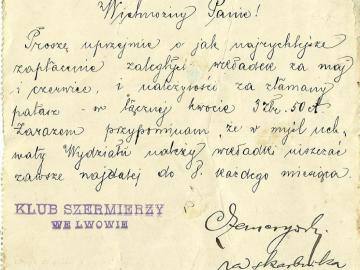 Wielmożny Panie!
Proszę uprzejmie o jak najrychlejsze
zapłacenie zaległych wkładek za maj
i czerwiec, i należytości za złamany
pałasz - w łącznej kwocie 3 złr. 50 ct.
Zarazem przypominam, że w myśl uch-
wały Wydziału należy wkładki uiszczać
zawsze najdalej do 8. każdego miesiąca.
KLUB SZERMIERZY
WE LWOWIE
za skarbnika